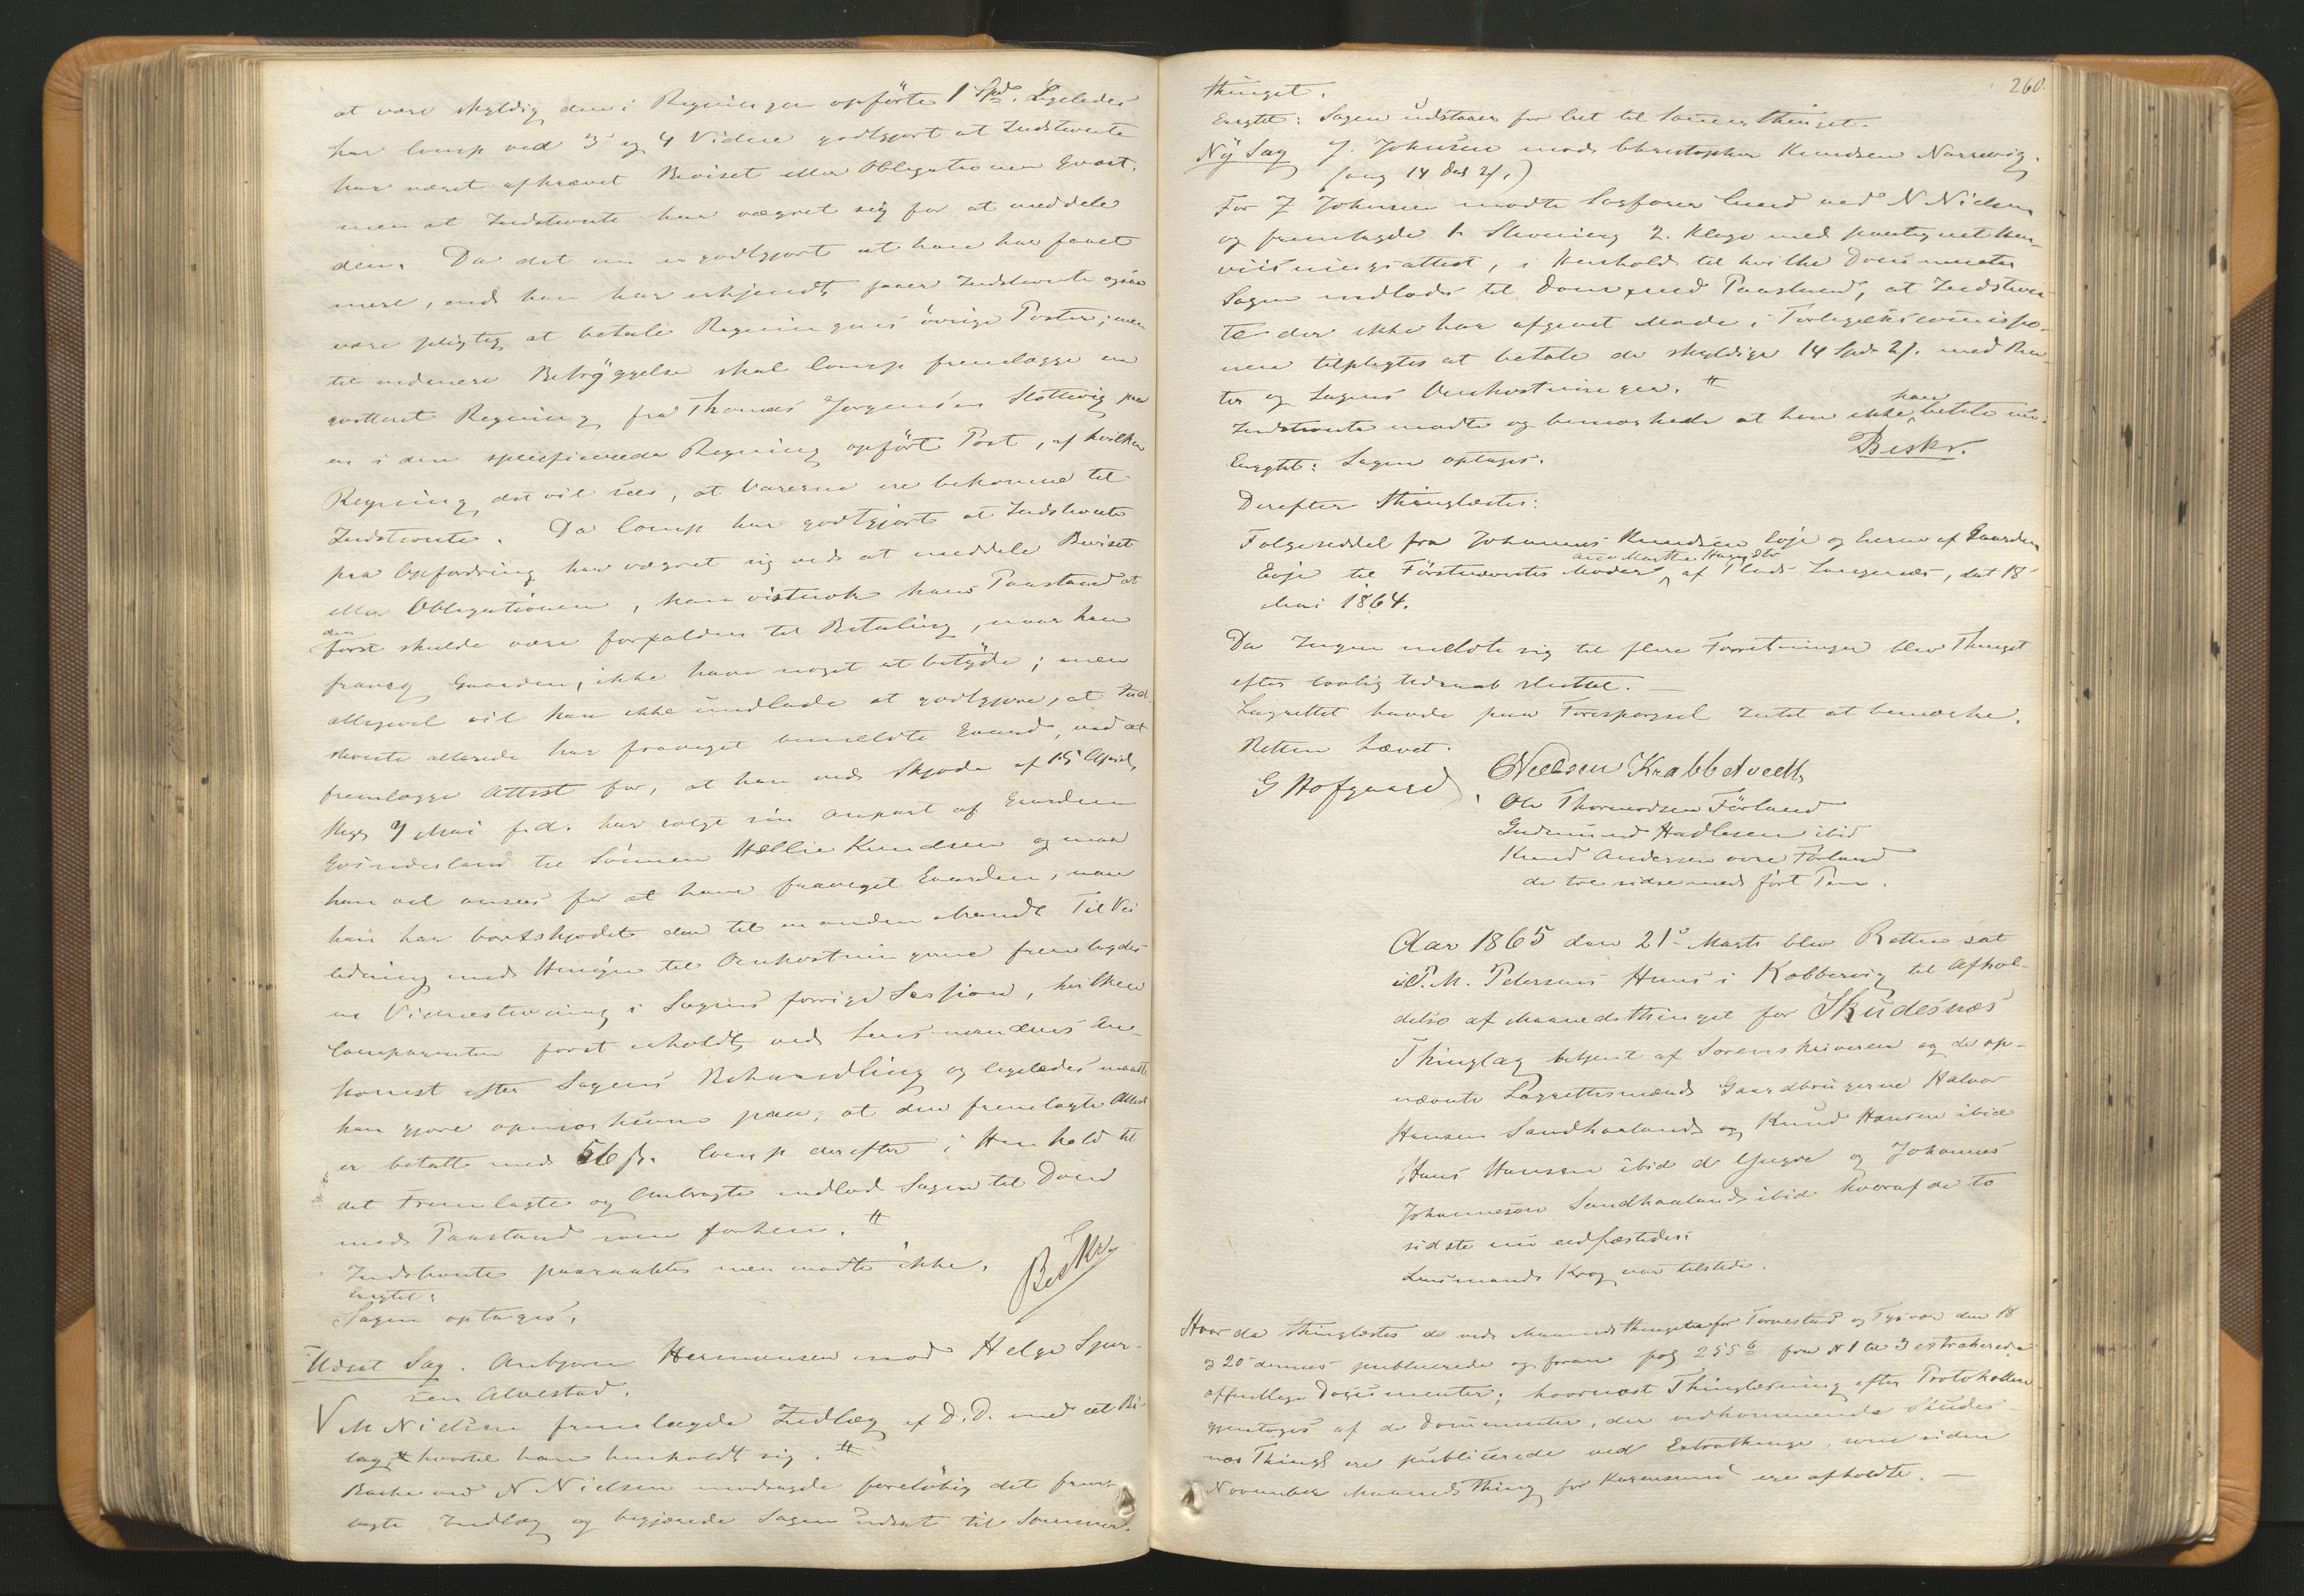 at være skyldig den i Regningen opførte 1 Spd. Ligeledes
har Comp ved 3 og 4 Vidne godtgjort at Indstevnte
har været afkrævet Beviset eller Obligationen qvæst.
men at Indstevnte har vægret sig for at meddele
den. Da det nu er godtgjort at han har faaet
mere, end han har erkjendt, paaer Indstevnte ogsaa
være pligtig at betale Regningens øvrige Poster; men
til endmere Betryggelse skal Comp fremlægge en
qvitteret Regning fra Thomas Jørgensen Slottevig paa
en i den specificerede Regning opført Post, af hvilken
Regning det vil sees, at Varerne ere bekomne til
Indstevnte. Da Comp har godtgjort at Indstevnte
paa Opfordring har vægret sig ved at meddele Beviset
eller Obligationen, kan vistnok hans Paastand at
den
først skulde være forfalden til Betaling, naar han
fraveg Gaarden, ikke have noget at betyde; men
alligevel vil han ikke undlade at godtgjøre, at Ind-
stevnte allerede har fraveget bemeldte Gaard, ved at
fremlægge Attest for, at han ved Skjøde af 15 April
thgl 7 Mai f.d. har solgt sin Anpart af Gaarden
Gvinderland til Sønnen Hællie Knudsen og maa
han vel ansees for at have fraveget Gaarden, naar
han har bortskjødet den til en anden Mand. Til Vei
ledning med Hensyn til Omkostningerne fremlagdes
en Vidnestevning i Sagens forrige Session, hvilken
Comparenten først erholdt ved Lensmandens An-
komst efter Sagens Behandling og ligeledes maatte
han gjøre opmærksom paa, at den fremlagte Attest
er betalt med 56 ß. Comp derefter i Henhold til
det Fremlagte og Anbragte indlod Sagen til Dom
med Paastand som forhen.
Indstevnte paaraabtes men mødte ikke.
Beskr.
Eragtet:
Sagen optages.
Udsat Sag. Anbjørn Hermansen mod Helge Sjur-
sen Alvestad.
V M Nielsen fremlagde Indlæg af D.D. med et Bi-
lag, hvortil han henholdt sig.
Bache ved N Nielsen modsagde foreløbig det frem-
lagte Indlæg og begjærede Sagen udsat til Sommer-
260.
thinget.
Eragtet: Sagen udstaaer for Det til Sommerthinget.
Ny Sag J. Johnsen mod Christopher Knudsen Narrevig.
(ang 14 Spd 2/.)
For J Johnsen mødte Sagfører Lund ved N Nielsen
og fremlagde 1 Stevning 2. Klage med paategnet Hen-
viisningsattest, i Henhold til hvilke Documenter
Sagen indlodes til Dom med Paastand, at Indstevn-
te der ikke har afgivet Møde i Forligelsescommissio-
nen tilpligtes at betale de skyldige 14 Spd 2/. med Ren-
ter og Sagens Omkostninger.
kan
Indstevnte mødte og bemærkede at han ikke betale nu.
Eragtet: Sagen optages.
Beskr.
Derefter thinglæstes:
Følgeseddel fra Johannes Knudsen Eoje og Eieren af Gaarden
Ane Marthe Haagsdtr
Eoje til Førstnævntes Moder af Plads Langenæs, dat 18
Mai 1864.
Da Ingen meldte sig til flere Forretninger blev Thinget
efter lovlig Udraab sluttet.
Lagrettet havde paa Forespørgsel Intet at bemærke.
Retten hævet.
G Hofgaard. O Nielsen Krabbetvedt
Ole Thormodsen Førland
Gudmund Hadlesen ibid
Knud Andersen øvre Førland
de tre sidste med ført Pen.
Aar 1865 den 21de Marts blev Retten sat
i P. M. Petersens Huus i Kobbervig til Afhol-
delse af Maanedsthinget for Skudesnæs
Thinglag betjent af Sorenskriveren og de op-
nævnte Lagrettesmænd Gaardbrugerne Halvor
Hansen Sandhaaland og Knud Hansen ibid
Hans Hansen ibid d Yngre og Johannes
Johannesen Sandhaaland ibid hvoraf de to
sidste nu edfæstedes.
Lensmand Krog var tilstede.
Hvor da thinglæstes de ved Maanedsthingene for Torvestad og Tysvær den 18
og 20 dennes publicerede og foran pag 255 b fra N 1 til 3 extraherede
offentlige Documenter; hvornæst Thinglæsning efter Protokollen
gjentoges af de Documenter, der vedkommende Skudes-
næs Thingl ere publicerede ved Extrathinge, som siden
November Maanedsthing for Karmsund ere afholdte.